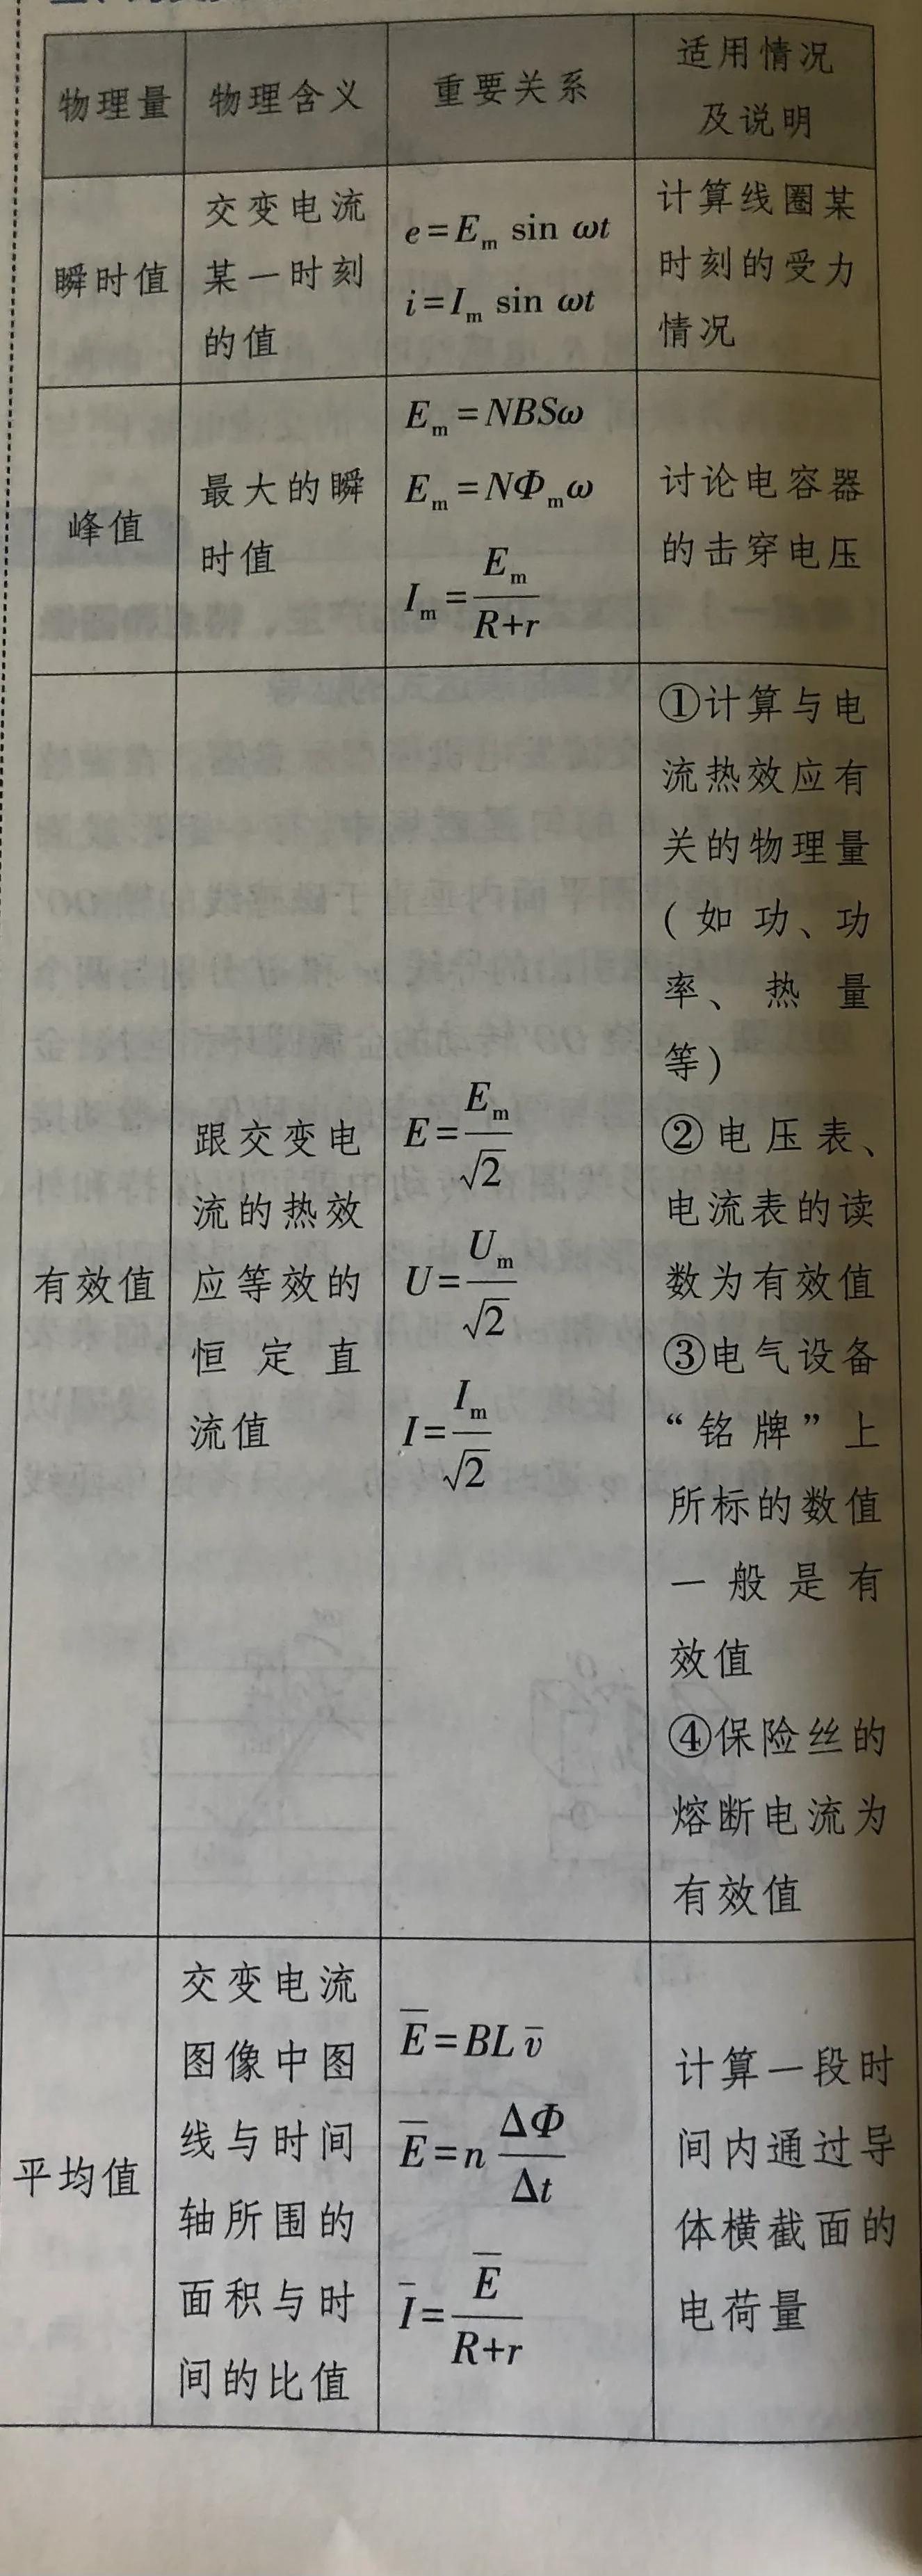 物理量
物理含义
重要关系
适用情况
及说明
瞬时值
交变电流
某一时刻
的值
e=Eₘ sin ωt
i=Iₘ sin ωt
计算线圈某
时刻的受力
情况
峰值
最大的瞬
时值
Eₘ=NBSω
Eₘ=NΦₘω
Iₘ=Eₘ/(R+r)
讨论电容器
的击穿电压
有效值
跟交变电
流的热效
应等效的
恒定直
流值
E=Eₘ/√2
U=Uₘ/√2
I=Iₘ/√2
①计算与电
流热效应有
关的物理量
(如功、功
率、热量
等)
②电压表、
电流表的读
数为有效值
③电气设备
“铭牌”上
所标的数值
一般是有
效值
④保险丝的
熔断电流为
有效值
平均值
交变电流
图像中图
线与时间
轴所围的
面积与时
间的比值
E̅=BLv̅
E̅=nΔΦ/Δt
I̅=E̅/(R+r)
计算一段时
间内通过导
体横截面的
电荷量